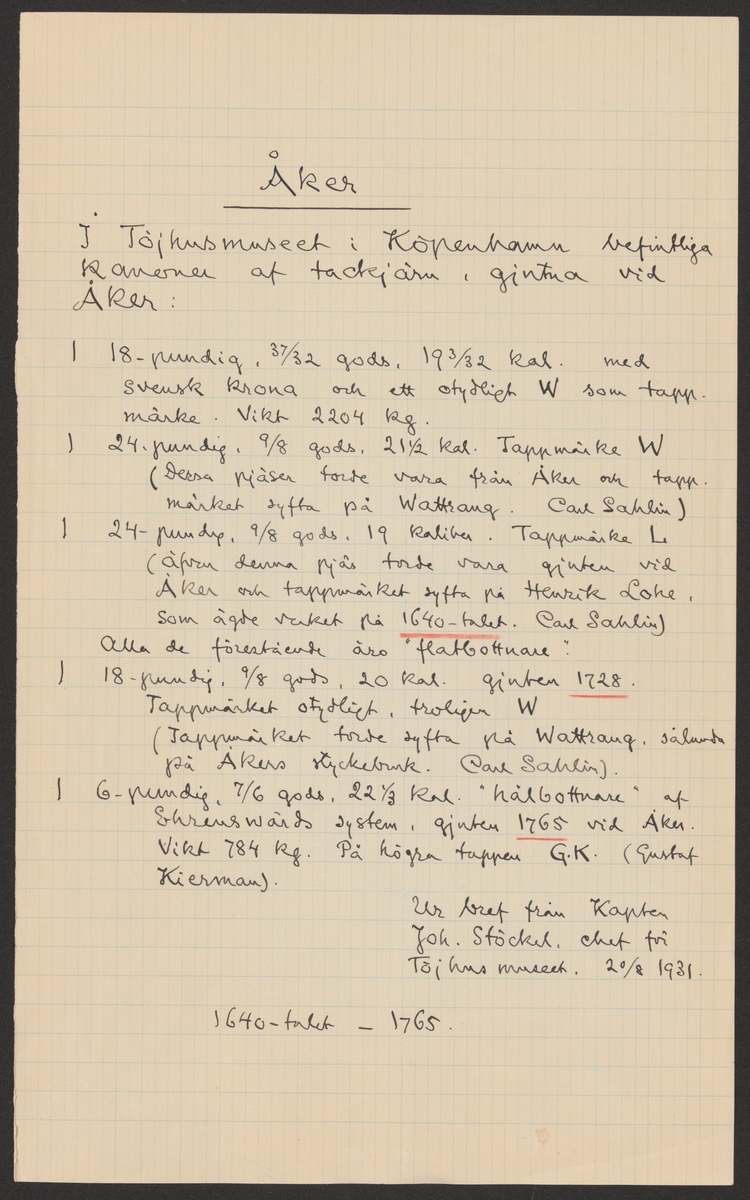 Åker
I Töjhusmuseet i Köpenhamn befintliga
kanoner af tackjärn, gjutna vid
Åker:
1 18-pundig, 37/32 gods, 19 3/32 kal. med
svensk krona och ett otydligt W som tapp-
märke. Vikt 2204 kg.
1 24-pundig, 9/8 gods, 21 1/2 kal. Tappmärke W
(Dessa pjäser torde vara från Åker och tapp-
märket syfta på Wattrang. Carl Sahlin)
1 24-pundig, 9/8 gods, 19 kaliber. Tappmärke L
(Äfven denna pjäs torde vara gjuten vid
Åker och tappmärket syfta på Henrik Lohe,
som ägde verket på 1640-talet. Carl Sahlin)
Alla de förestående äro "flatbottnare".
1 18-pundig, 9/8 gods, 20 kal. gjuten 1728.
Tappmärket otydligt, troligen W
(Tappmärket torde syfta på Wattrang, sålunda
på Åkers styckebruk. Carl Sahlin).
1 6-pundig, 7/6 gods, 22 1/3 kal. "hålbottnare" af
Ehrenswärds system, gjuten 1765 vid Åker.
Vikt 784 kg. På högra tappen G.K. (Gustaf
Kierman).
Ur bref från Kapten
Joh. Stöckel, chef för
Töjhusmuseet. 20/8 1931.
1640-talet – 1765.